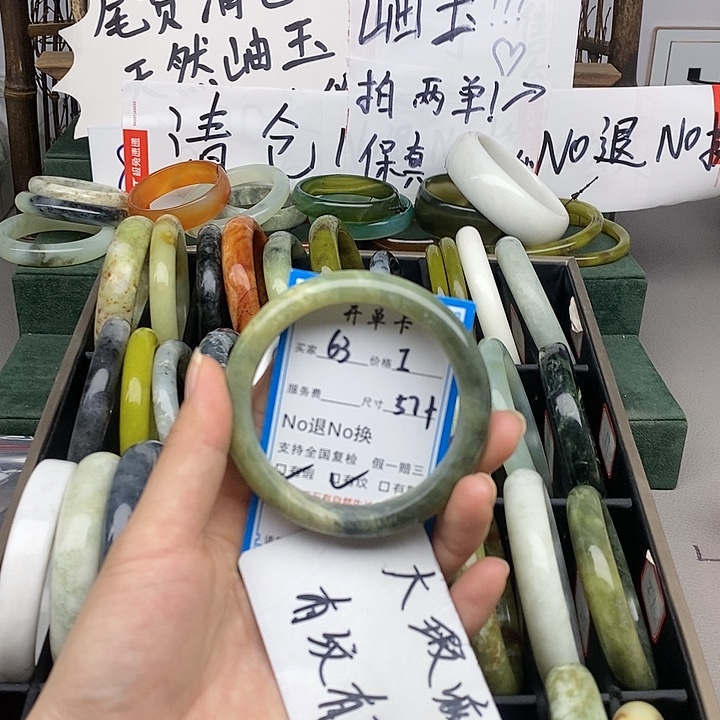 尾货清仓
天然岫玉
岫玉!!!
拍两单!→
清仓!
保真
No退 No
开单卡
买家 63 价格 1
服务费 尺寸 57+
No退No换
支持全国复检 假一赔三
口有瑕 口有纹 口有
大瑕
有纹有